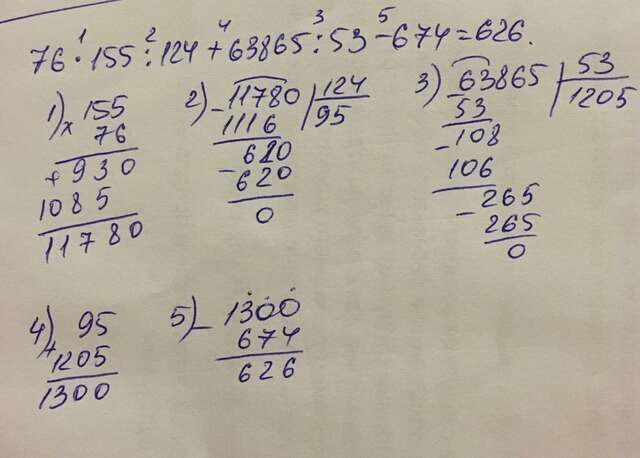 1 2 4 3 5
76 · 155 : 124 + 63865 : 53 - 674 = 626.
1) x 155
76
+ 930
1085
11780
2) - 11780 | 124
1116 | 95
- 620
620
0
3) - 63865 | 53
53 | 1205
- 108
106
- 265
265
0
4) + 95
1205
1300
5) - 1300
674
626